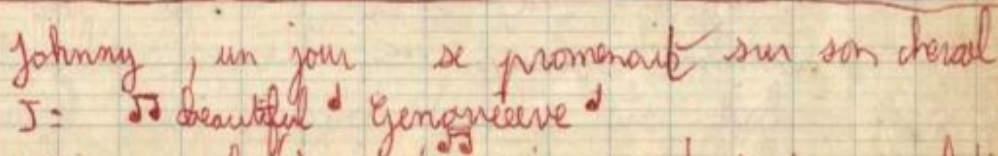 Johnny, un jour se promenait sur son cheval
J= ♫ beautiful ♩ Genevieeve ♩